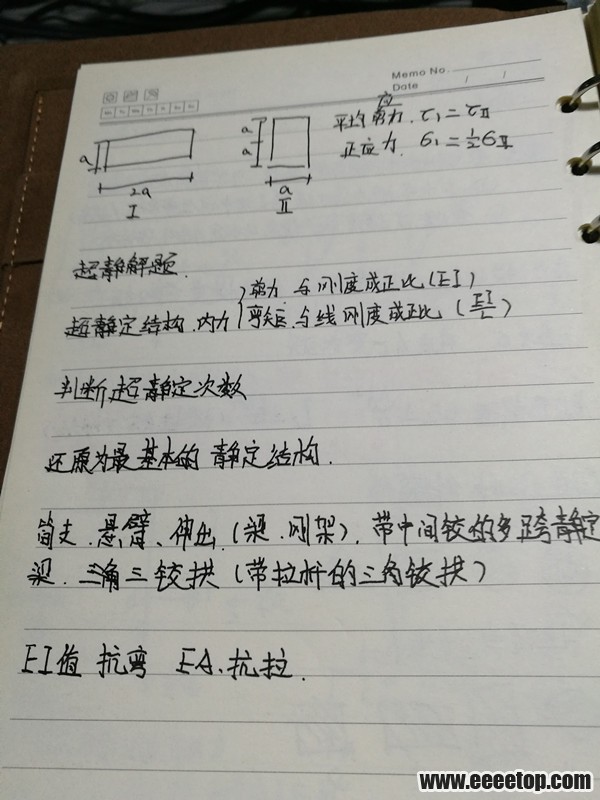 Memo No.
Date / /
平均剪应力. τ₁=τⅡ
正应力. б₁=½бⅡ
a
2a
I
a
a
a
Ⅱ
超静解题.
超静定结构.内力
剪力 与刚度成正比(EI)
弯矩.与线刚度成正比 (EI/L)
判断超静定次数
还原为最基本的静定结构.
简支.悬臂、伸出.(梁.刚架).带中间铰的多跨静定
梁.三角三铰拱(带拉杆的三角铰拱)
EI值 抗弯 EA.抗拉.
www.eeeetop.com